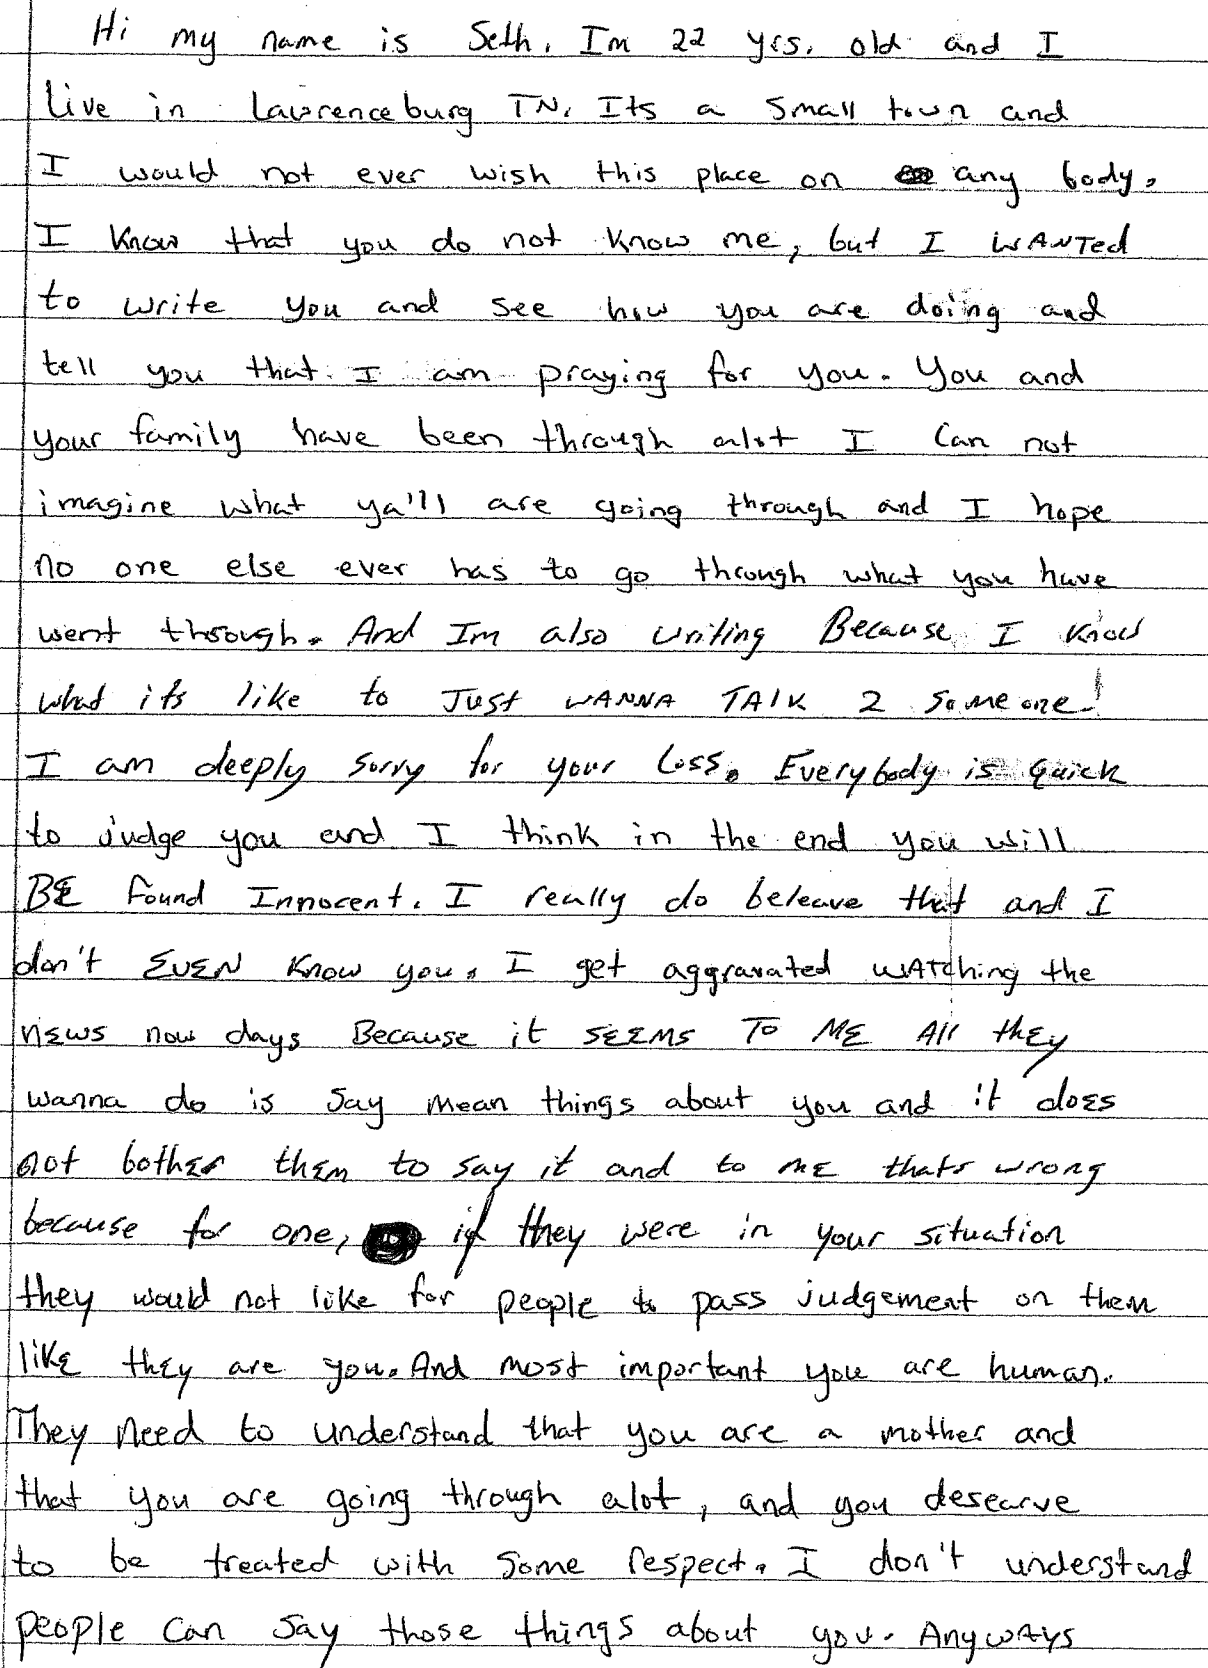 Hi my name is Seth. Im 22 yrs. old and I
live in Lawrenceburg TN. Its a small town and
I would not ever wish this place on any body.
I know that you do not know me, but I WANTed
to write you and see how you are doing and
tell you that I am praying for you. You and
your family have been through alot I can not
imagine what ya'll are going through and I hope
no one else ever has to go through what you have
went through. And Im also writing Because I know
what its like to Just WANNA TAlK 2 someone!
I am deeply sorry for your loss. Everybody is quick
to judge you and I think in the end you will
BE found Innocent. I really do beleave that and I
don't EVEN know you. I get aggravated wATching the
nEws now days Because it sEEMS To ME All thEy
wanna do is say mean things about you and it doEs
not bother thEm to say it and to mE thats wrong
because for one, if they were in your situation
they would not like for people to pass judgement on them
likE thEy are you. And most important you are human.
They need to understand that you are a mother and
that you are going through alot, and you desearve
to be treated with some respect. I don't understand
people can say those things about you. AnywAys